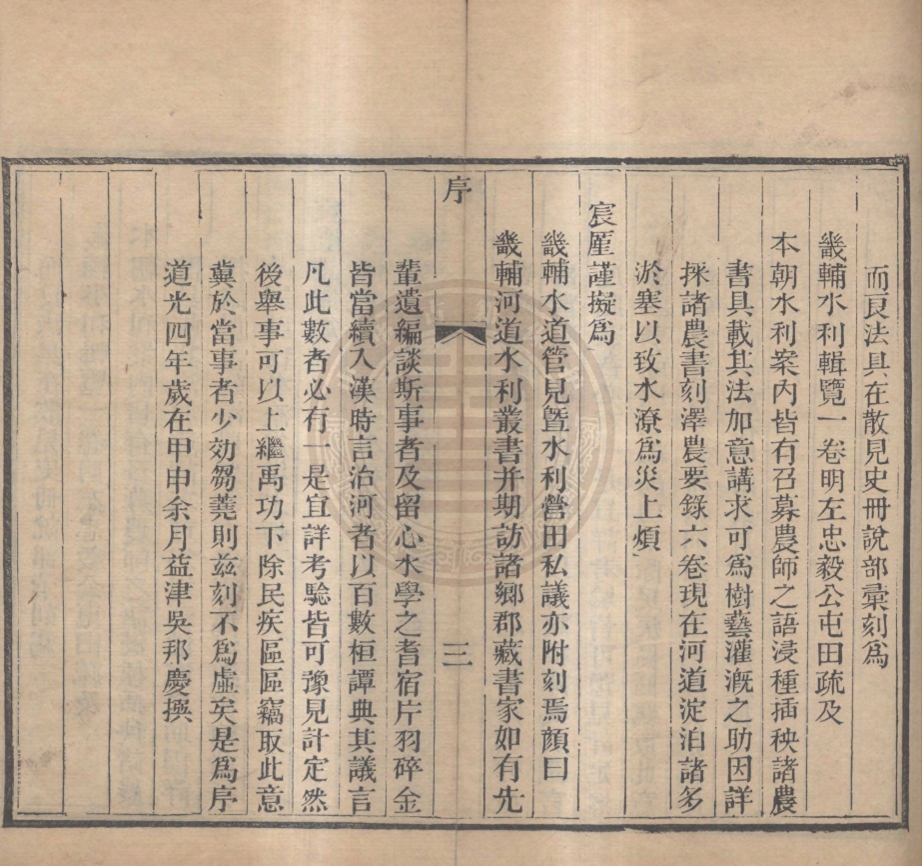 而良法具在散見史冊說部彙刻爲
畿輔水利輯覽一卷明左忠毅公屯田疏及
本朝水利案內皆有召募農師之語浸種插秧諸農
書具載其法加意講求可爲樹藝灌溉之助因詳
採諸農書刻澤農要錄六卷現在河道淀泊諸多
淤塞以致水潦爲災上煩
宸厪謹擬爲
畿輔水道管見曁水利營田私議亦附刻焉顏曰
畿輔河道水利叢書并期訪諸鄉郡藏書家如有先
序
三
輩遺編談斯事者及留心水學之耆宿片羽碎金
皆當續入漢時言治河者以百數桓譚典其議言
凡此數者必有一是宜詳考驗皆可豫見計定然
後舉事可以上繼禹功下除民疾區區竊取此意
冀於當事者少効芻蕘則茲刻不爲虛矣是爲序
道光四年歲在甲申余月益津吳邦慶撰